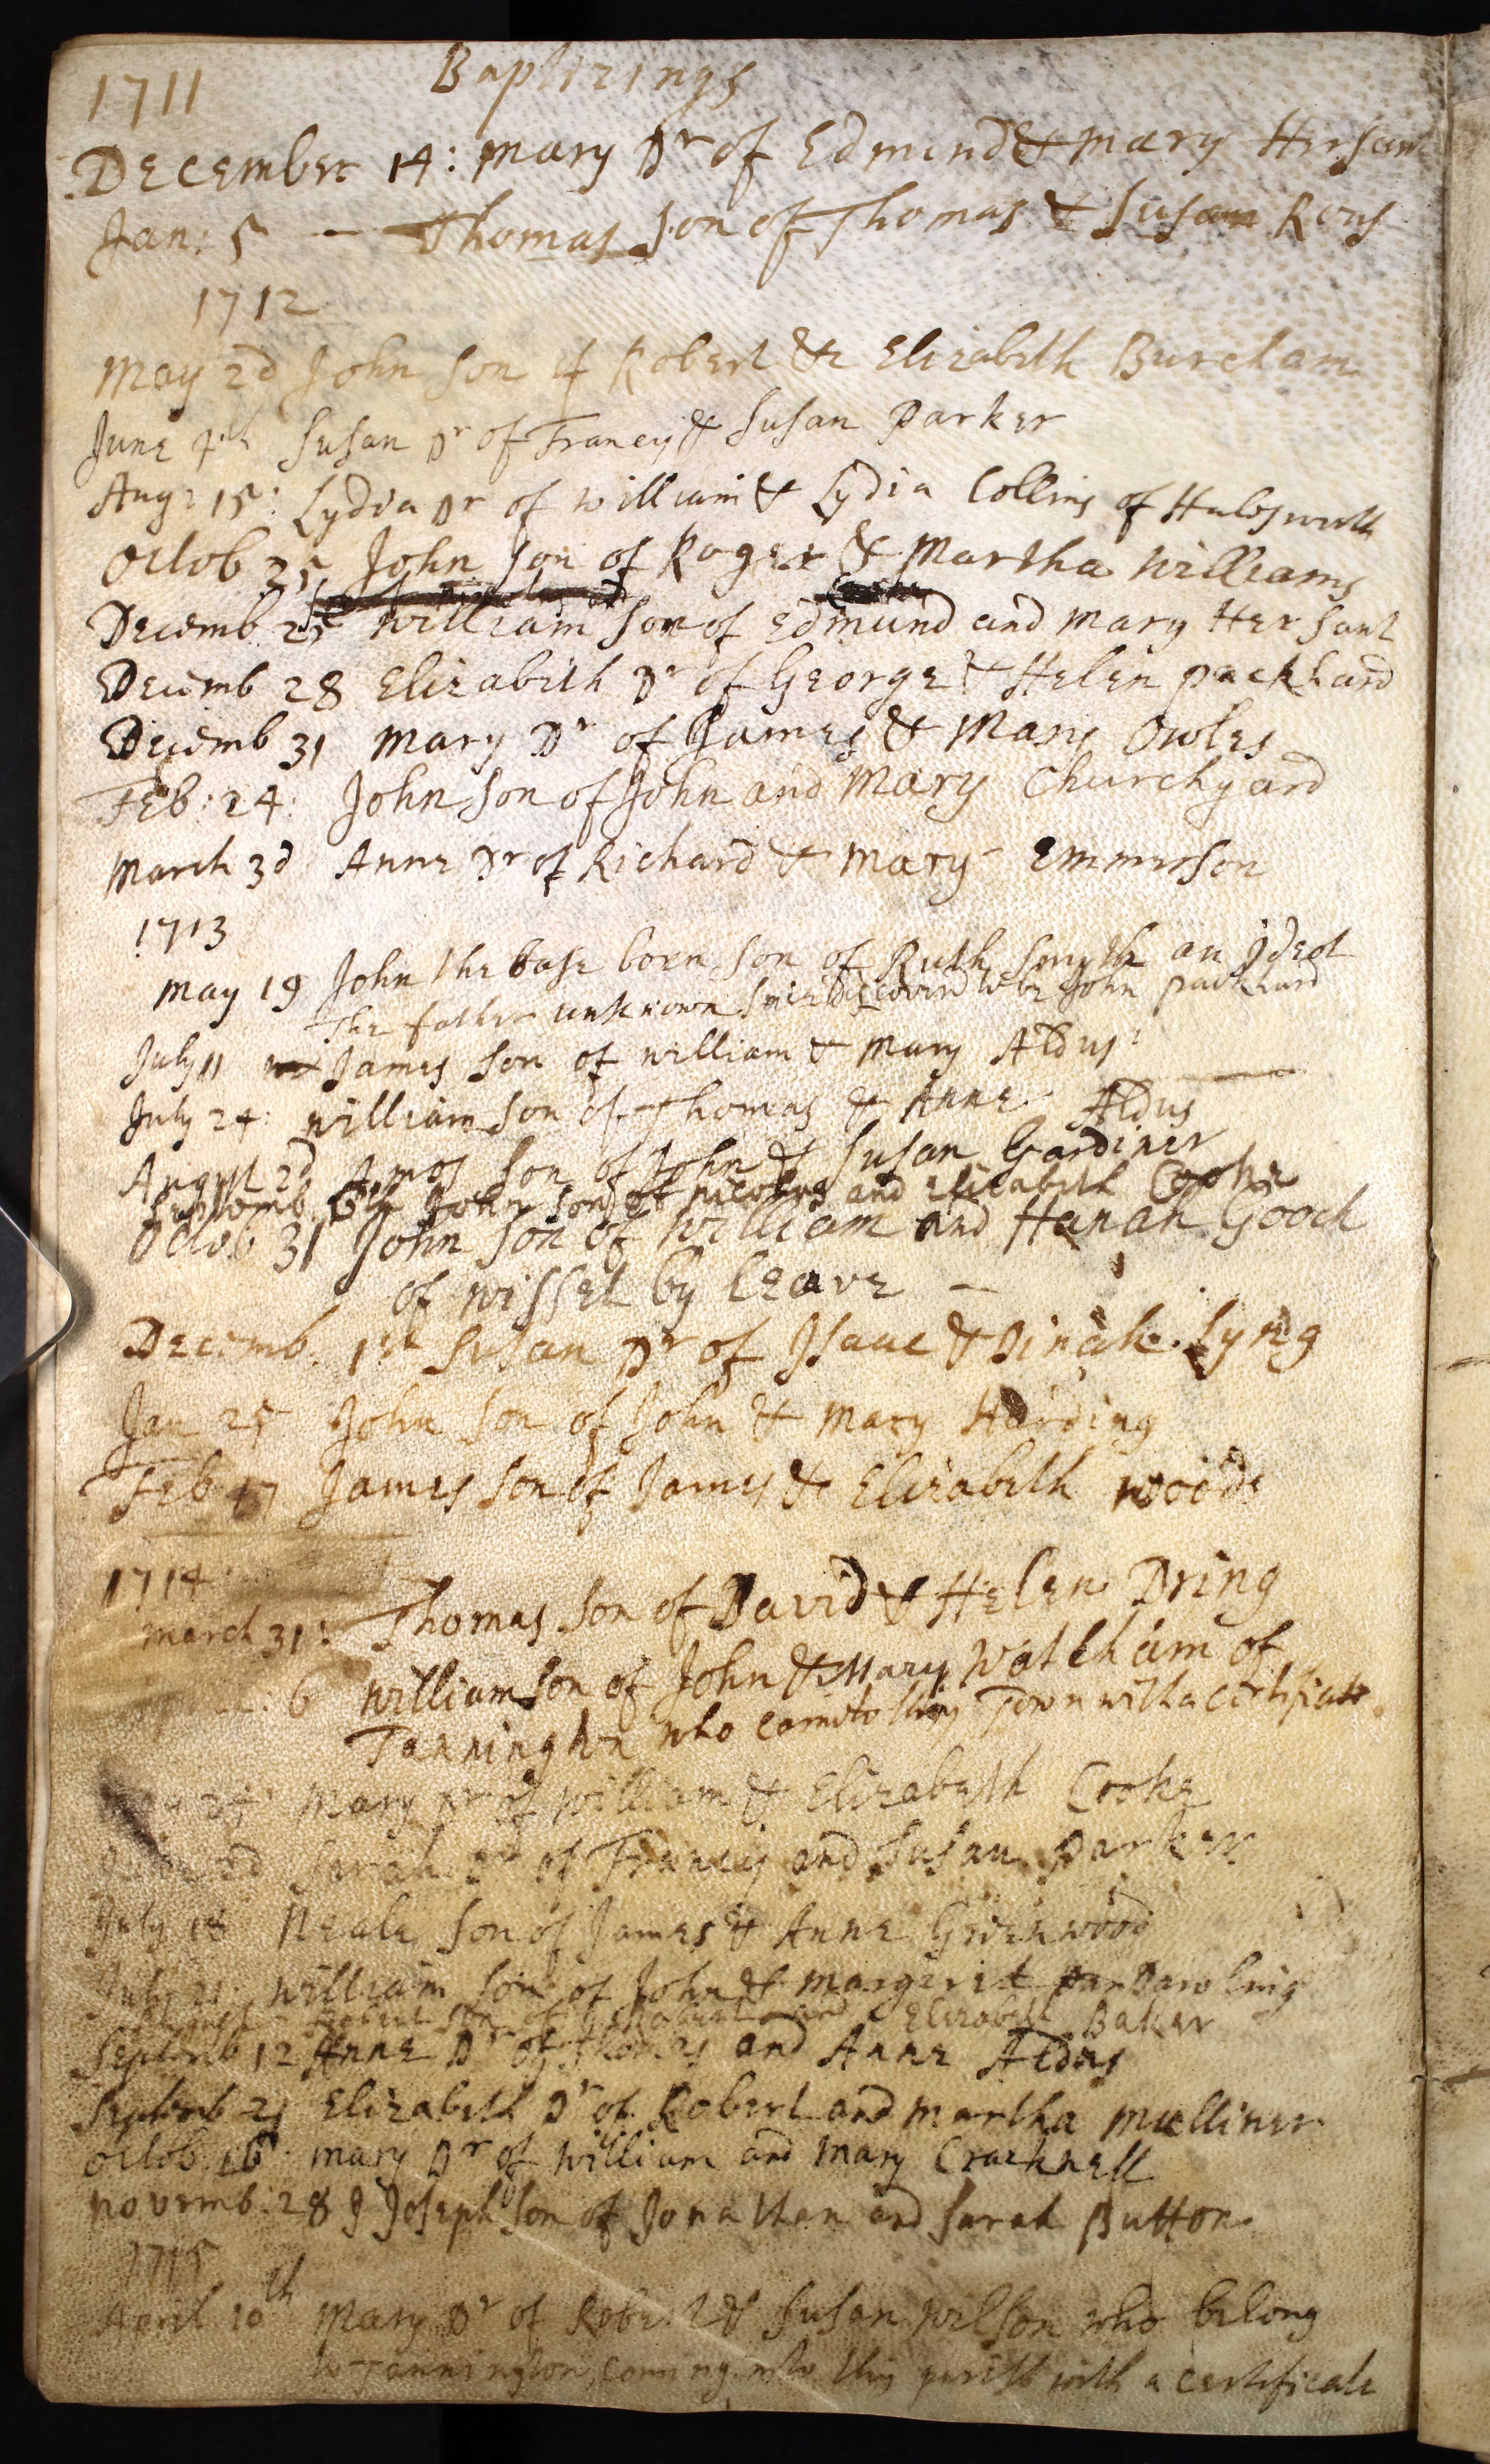 1711 Baptizings
December 14: Mary Dr of Edmund & Mary Hersant
Jan: 5 - Thomas Son of Thomas & Susan Rous
1712
May 2d John Son of Robert & Elizabeth Burcham
June 4th Susan Dr of Francys & Susan Parker
Aug: 15: Lydia Dr of William & Lydia Collins of
Octob 25 John Son of Roger & Martha Williams
Decemb 25 William Son of Edmund and Mary Hersant
Decemb 28 Elizabeth Dr of George & Helen Packhard
Decemb 31 Mary Dr of James & Mary Owles
Feb: 24: John Son of John and Mary Churchyard
March 3d Anne Dr of Richard & Mary Emmerson
1713
May 19 John the base born Son of Ruth Smyth an Ideot
The father unknown Since discoverd to be John Packhard
July 11 James Son of William & Mary Aldus
July 24: William Son of Thomas & Anne Aldus
August 2d Amos Son of John & Susan Gardiner
Septemb 6th John Son of Nicolas and Elizabeth Cooke
Octob 31 John Son of William and Hanah Gooch
of Wisset by leave -
Decemb. 1st Susan Dr of Isaac & Dinah Lyng
Jan 25 John Son of John & Mary Harding
Feb 17 James Son of James & Elizabeth Woods
1714
March 31: Thomas Son of David & Helen Dring
6 William Son of John & Mary Watcham of
Tannington who came to this Town with a certificate.
25 Mary Dr of William & Elizabeth Cooke
2d Sarah Dr of Francys and Susan Parker
July 18 Neale Son of James & Anne Greenwood
July 21: William Son of John & Margeret Dawling
Robert Son of Robert and Elizabeth Baker
Septemb 12 Anne Dr of Thomas and Anne Aldus
Septemb 21 Elizabeth Dr of Robert and Martha Mulliner
Octob. 16 Mary Dr of William and Mary Cracknell
Novemb: 28 J Joseph Son of Jonathan and Sarah Button
1715
April 10th Mary Dr of Robert & Susan Wilson who belong
to Tannington, coming into this parish with a certificate